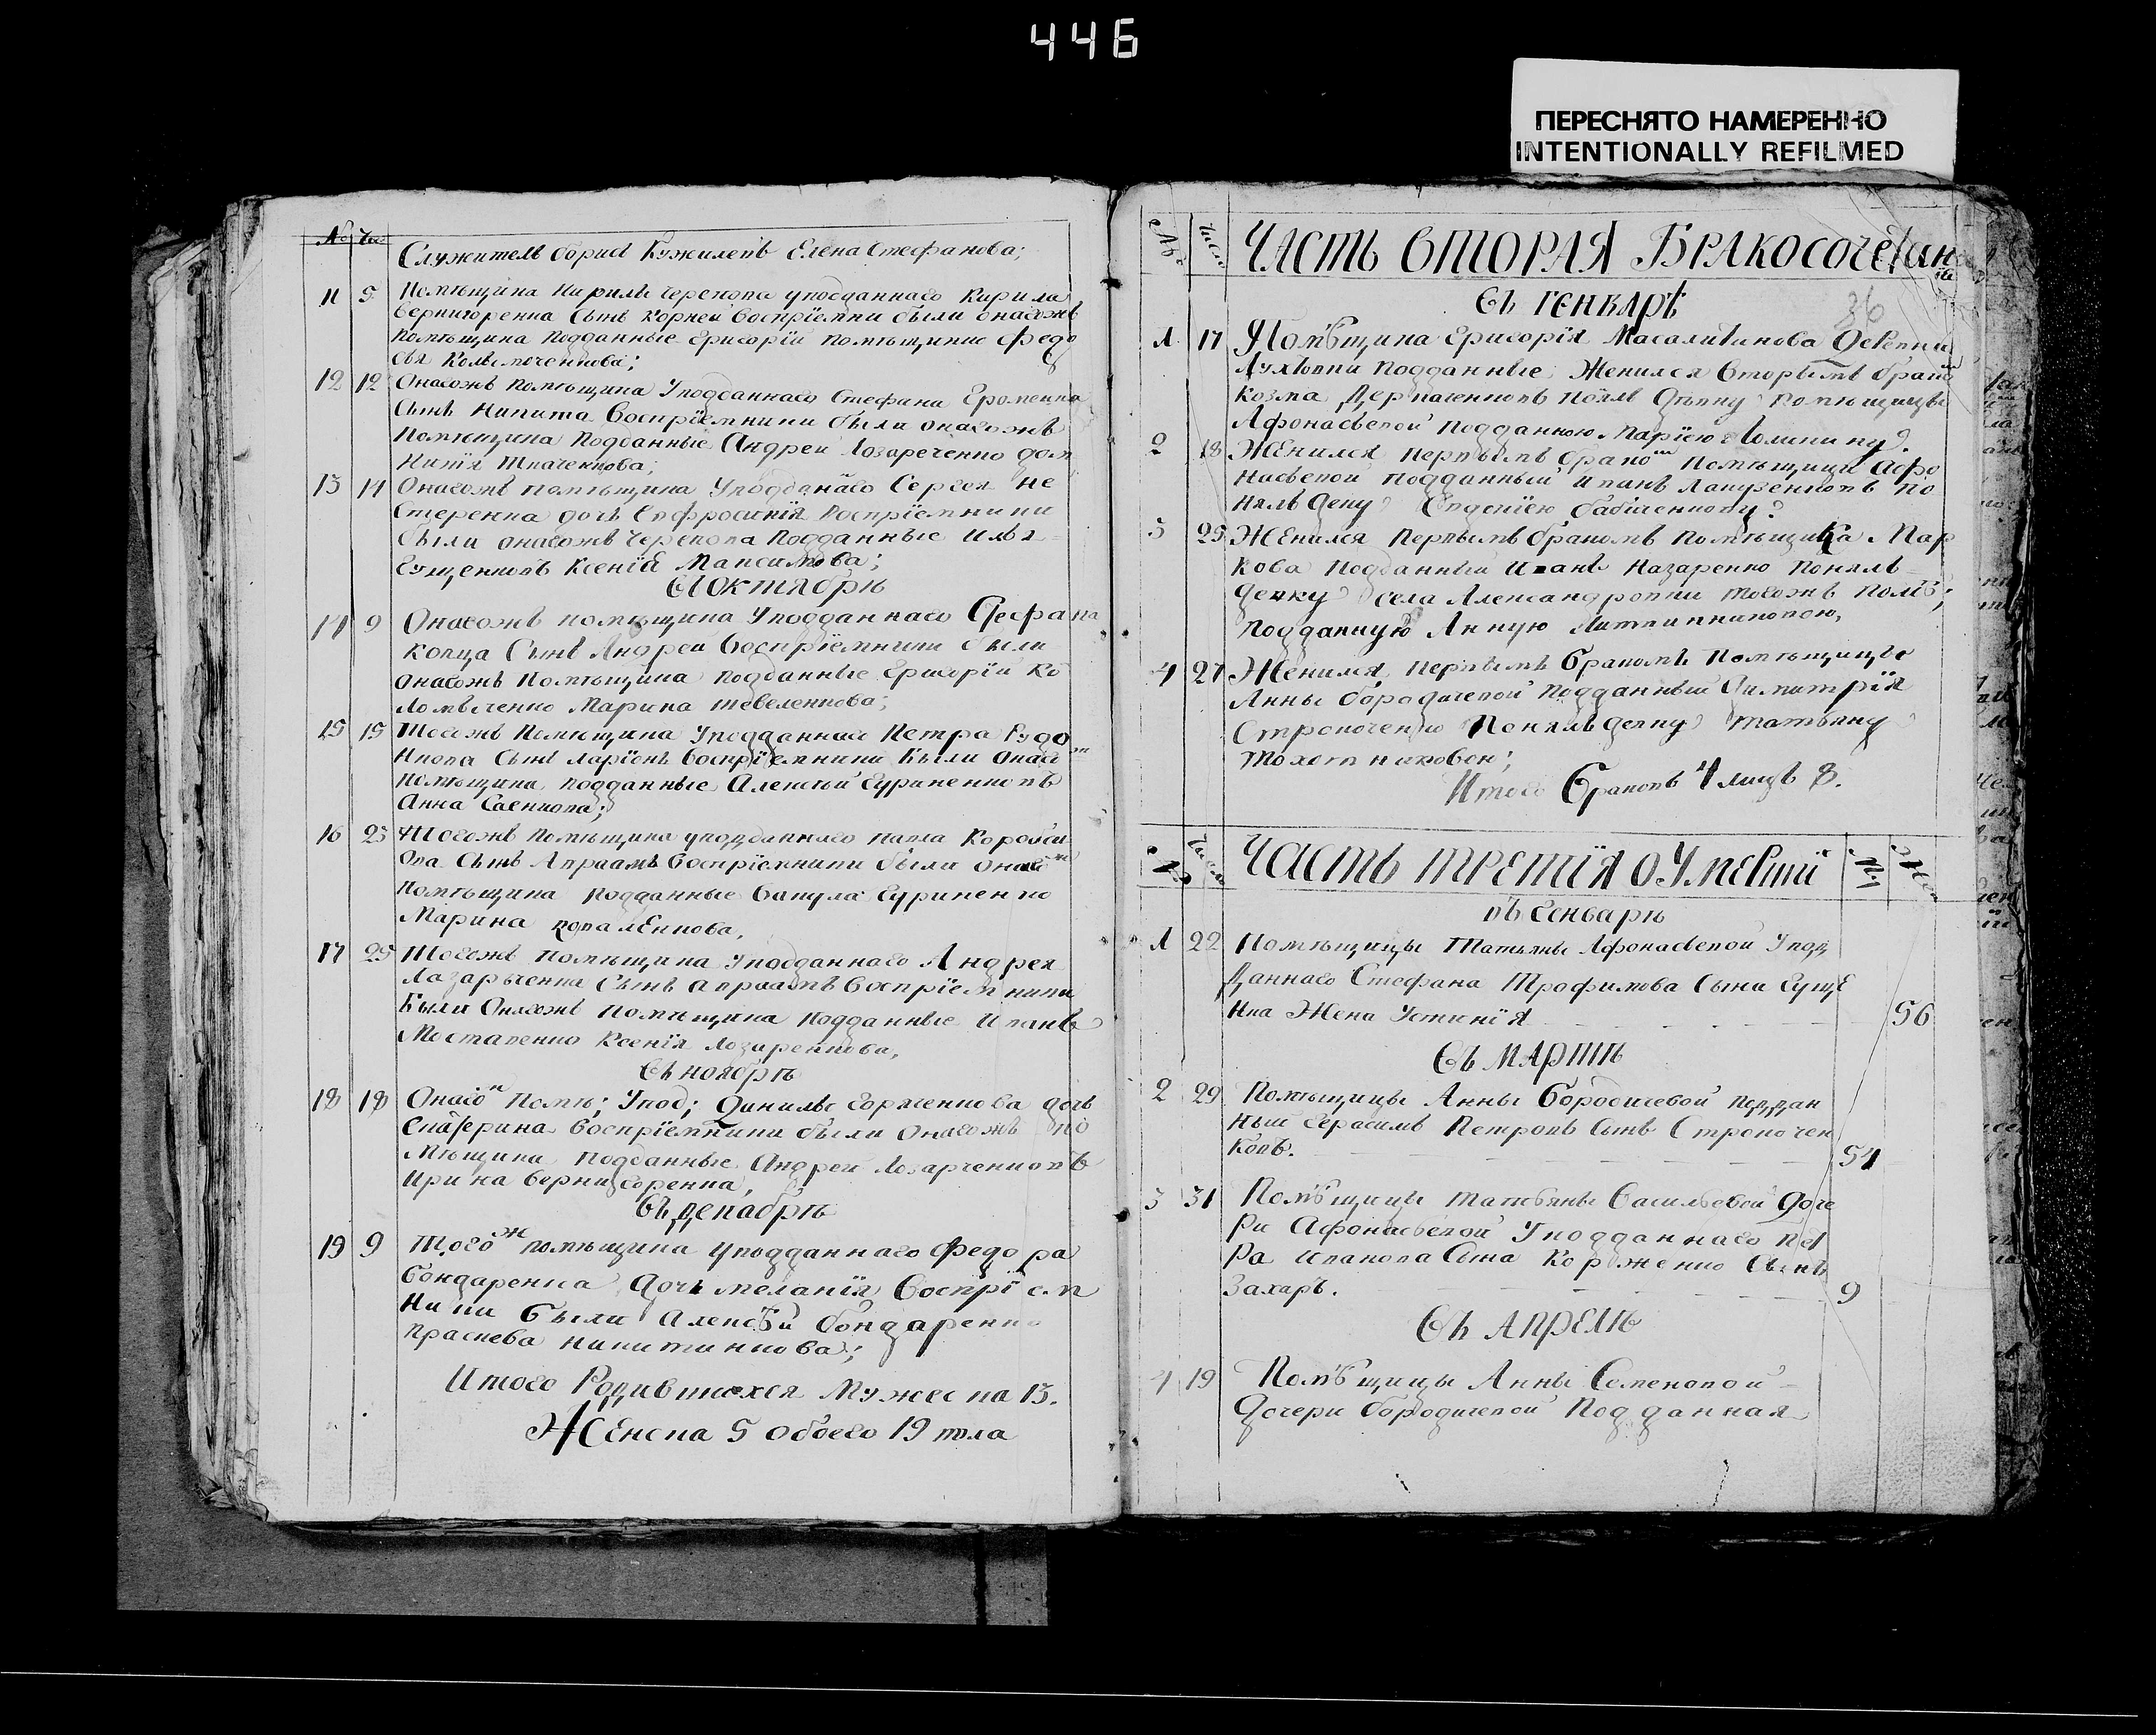 446
ПЕРЕСНЯТО НАМЕРЕННО
INTENTIONALLY REFILMED
№ Чис
Служитель борисъ Кужилевъ Елена Стефанова;
11 5 Помѣщика Кирила черепова уподданнаго Кирила
Верниторенка Сынъ Корней Воспрїемники были онагожъ
помѣщика подданные Григорїй помѣщикис Федо
сья Коломоченкова;
12 12 Онагожъ помѣщика Уподданнаго Стефана Ероменка
Сынъ Никита Воспрїемники были онагожъ
Помѣщика Подданные Андрей Лозареченко дом
Никїя Ткаченкова;
13 14 Онагожъ помѣщика Уподданаго Сергея Не
стеренка дочь Евфросинїя Воспрїемники
были онагожъ Черепова Подданные Илья
Гущенковъ Ксенїя Максимова;
Въ Октябрѣ
14 9 Онагожъ помѣщика Уподданнаго Стефана
Копца Сынъ Андрей Воспрїемники были
онагожъ Помѣщика подданные Григорїй Ко
ломыченко Марина шевеленкова;
15 15 Тогожъ Помѣщика Уподданнаго Петра Рудо
Нкова Сынъ Ларїонъ Воспрїемники Были Онаго
помѣщика подданные Алексѣй Гуриненковъ
Анна Саенкова;
16 23 Тогожъ помѣщика уподданнаго павла Коробки
ова Сынъ Авраамъ Воспрїемники были онаго
помѣщика подданные Вакула Гуриненко
Марина коваленкова,
17 25 Тогожъ помѣщика уподданнаго Андрея
Лазарыченка Сынъ авраамъ Воспрїемники
Были Онагожъ помѣщика подданные Иванъ
Мостапенко Ксенїя Лозаренкова,
Въ ноябрѣ
18 18 Онагож Помѣ; Упод; Данилы Горженкова дочь
Екатерина Воспрїемники были Онагожъ по
Мѣщика подданные Андрей Лозарченковъ
Ирина Вернигоренка,
Въ декабрѣ
19 9 Того ж помѣщика уподданнаго Федора
Бондаренка Дочь меланїя Воспрїем
Ники Были Алексѣй бондаренко
Праскева никитинкова;
Итого Родившихся Мужеска 13.
Женска 5 обоего 19 пола
№ Число
ЧАСТЬ ВТОРАЯ БРАКОСОЧЕТАН
їя
36
Въ ГЕНВАРѢ
1 17 Помѣщика Григорїя Масалитинова Деревни
Лухъовки Подданные Женился Вторымъ бракомъ
Козма Деркаченковъ понялъ дѣвку помѣщицы
Афонасьевой подданною Марїею Голикину.
2 18 Женился Первымъ бракомъ Помѣщицы Афо
Насьевой подданный Иванъ Лапузенковъ по
нялъ девку Евдокїею бабиченкову.
3 25 Женился Первымъ бракомъ помѣщика Мар
Кова Подданный Иванъ Назаренко понялъ
девку села Александровки тогожъ помѣ;
подданную Анную Литвинниковою,
4 27 Женился Первымъ Бракомъ Помѣщицы
Анны бородичевой подданный Димитрїя
Строкоченко Понялъ девку татьяну
тохотниковои;
Итого Браковъ 4 лицъ 8.
№ Число
ЧАСТЬ ТРЕТЇЯ О УМЕРШИ Му Жен
въ Генварѣ
1 22 Помѣщицы Татьяны Афонасьевой Упод
Даннаго Стефана Трофимова Сына Гуще
Нка Жена Устинїя 56
Въ МАРТѢ
2 29 Помѣщицы Анны Бородичевой поддан
ный Герасимъ Петровъ Сынъ Строкочен
Ковъ. 54
3 31 Помѣщицы татьяны Васильевой Доче
ри Афонасьевой Уподданнаго Пет
Ра Иванова Сына Корженко Сынъ
Захаръ. 9
Въ АПРЕЛѢ
4 19 Помѣщицы Анны Семеновой
Дочери бородичевой Подданная